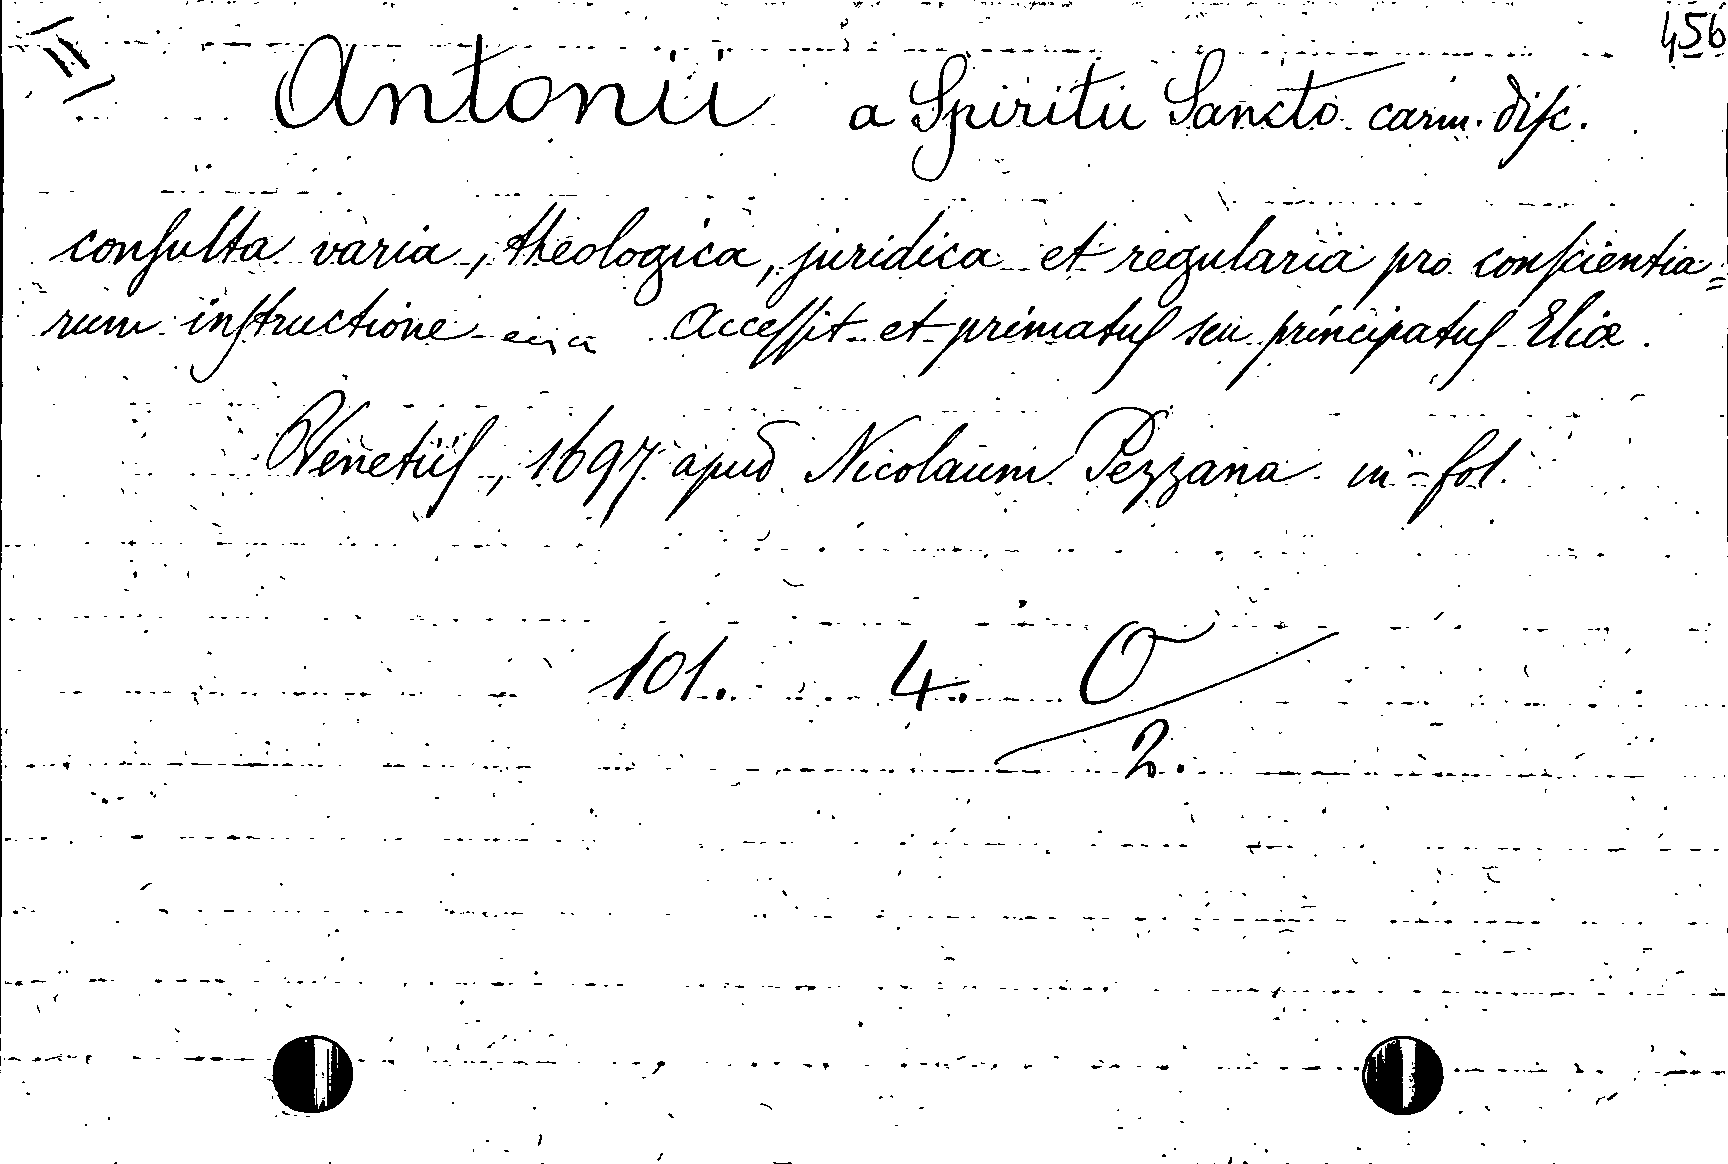 456
II
Antonii a Spiritu Sancto carm. disc.
consulta varia, theologica, juridica et regularia pro conscientia=
rum instructione Accessit et primatus seu principatus Eliæ.
Venetiis, 1697 apud Nicolaum Pezzana in-fol.
101. 4. O
2.